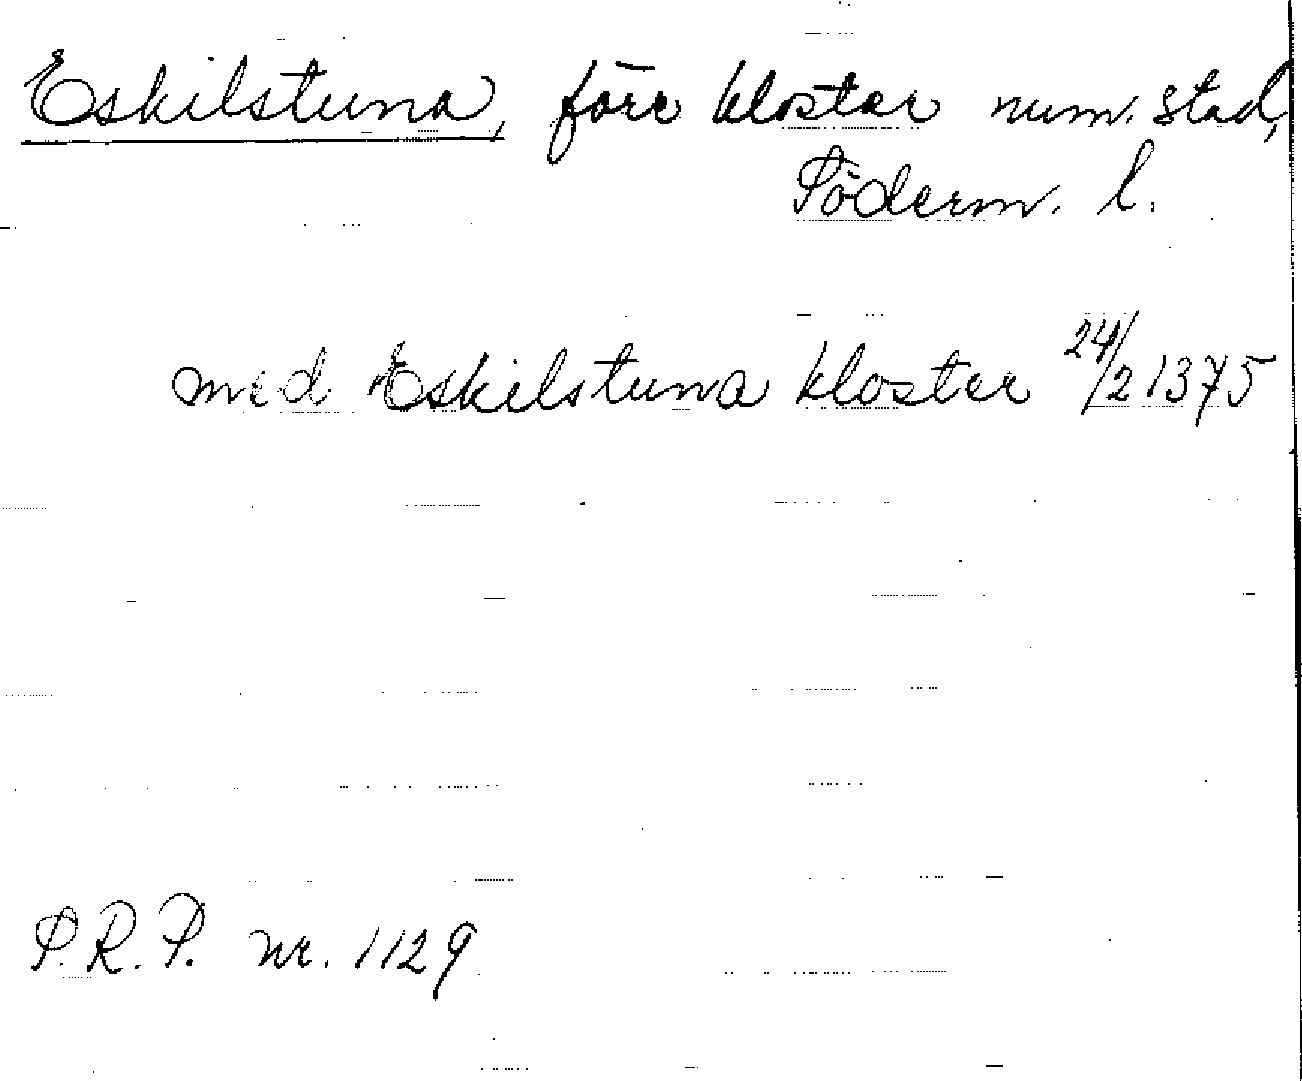 Eskilstuna, före kloster num. stad,
Söderm. l.
med Eskilstuna kloster 24/2 1375
S.R.P. nr. 1129